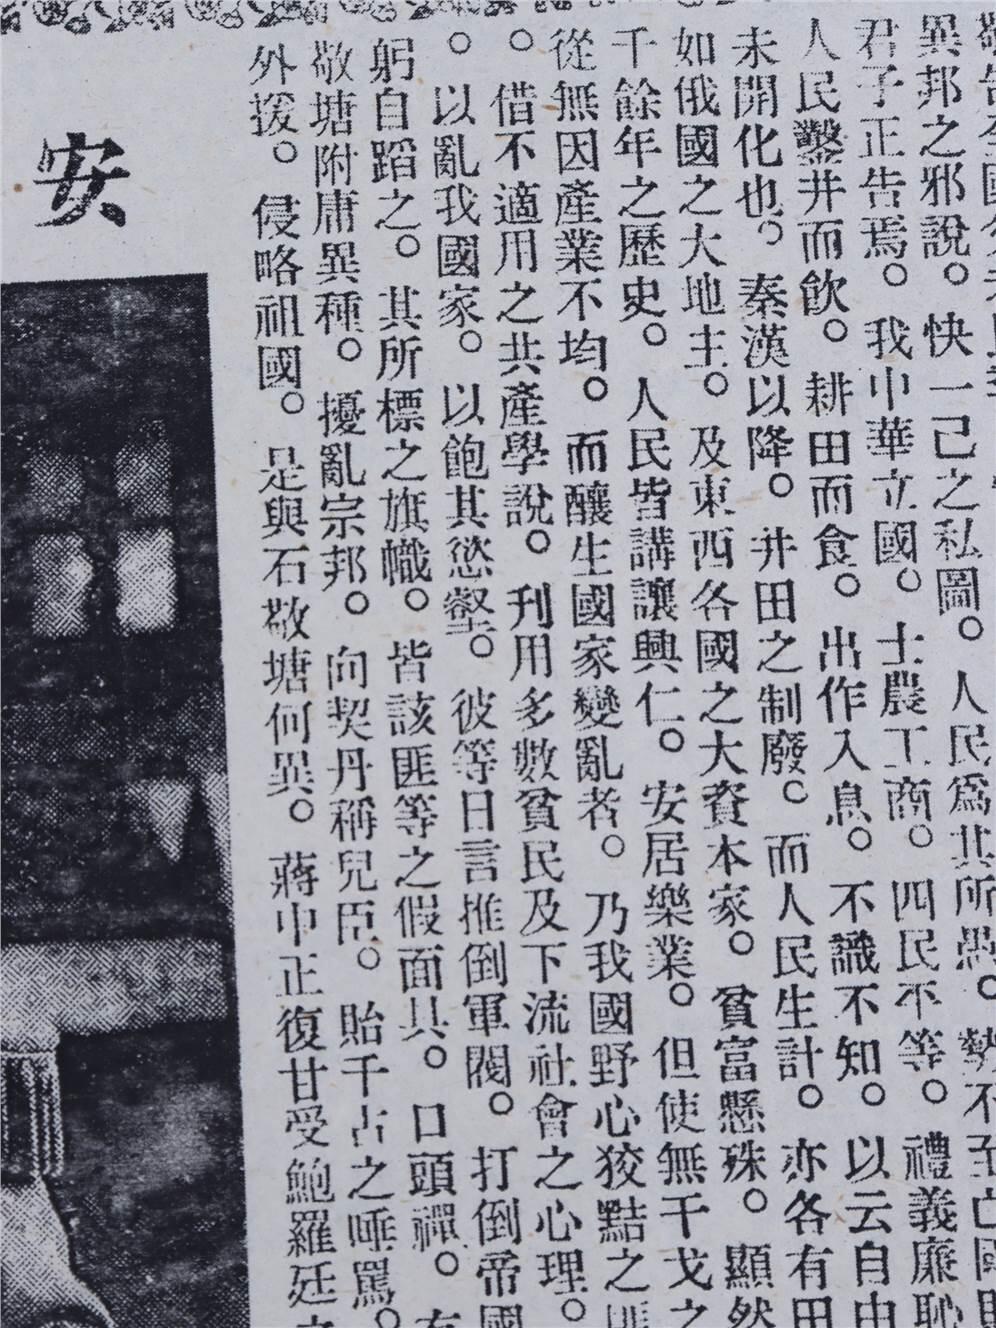 異邦之邪說。快一己之私圖。人民爲其所愚。勢不至亡國
君子正告焉。我中華立國。士農工商。四民平等。禮義廉恥
人民鑿井而飲。耕田而食。出作入息。不識不知。以云自由
未開化也。秦漢以降。井田之制廢。而人民生計。亦各有田
如俄國之大地主。及東西各國之大資本家。貧富懸殊。顯然
千餘年之歷史。人民皆講讓興仁。安居樂業。但使無干戈之
從無因產業不均。而釀生國家變亂者。乃我國野心狡黠之匪
。借不適用之共產學說。利用多數貧民及下流社會之心理。
。以亂我國家。以飽其慾壑。彼等日言推倒軍閥。打倒帝國
躬自蹈之。其所標之旗幟。皆該匪等之假面具。口頭禪。
敬塘附庸異種。擾亂宗邦。向契丹稱兒臣。貽千古之唾罵。
外援。侵略祖國。是與石敬塘何異。蔣中正復甘受鮑羅廷之
安